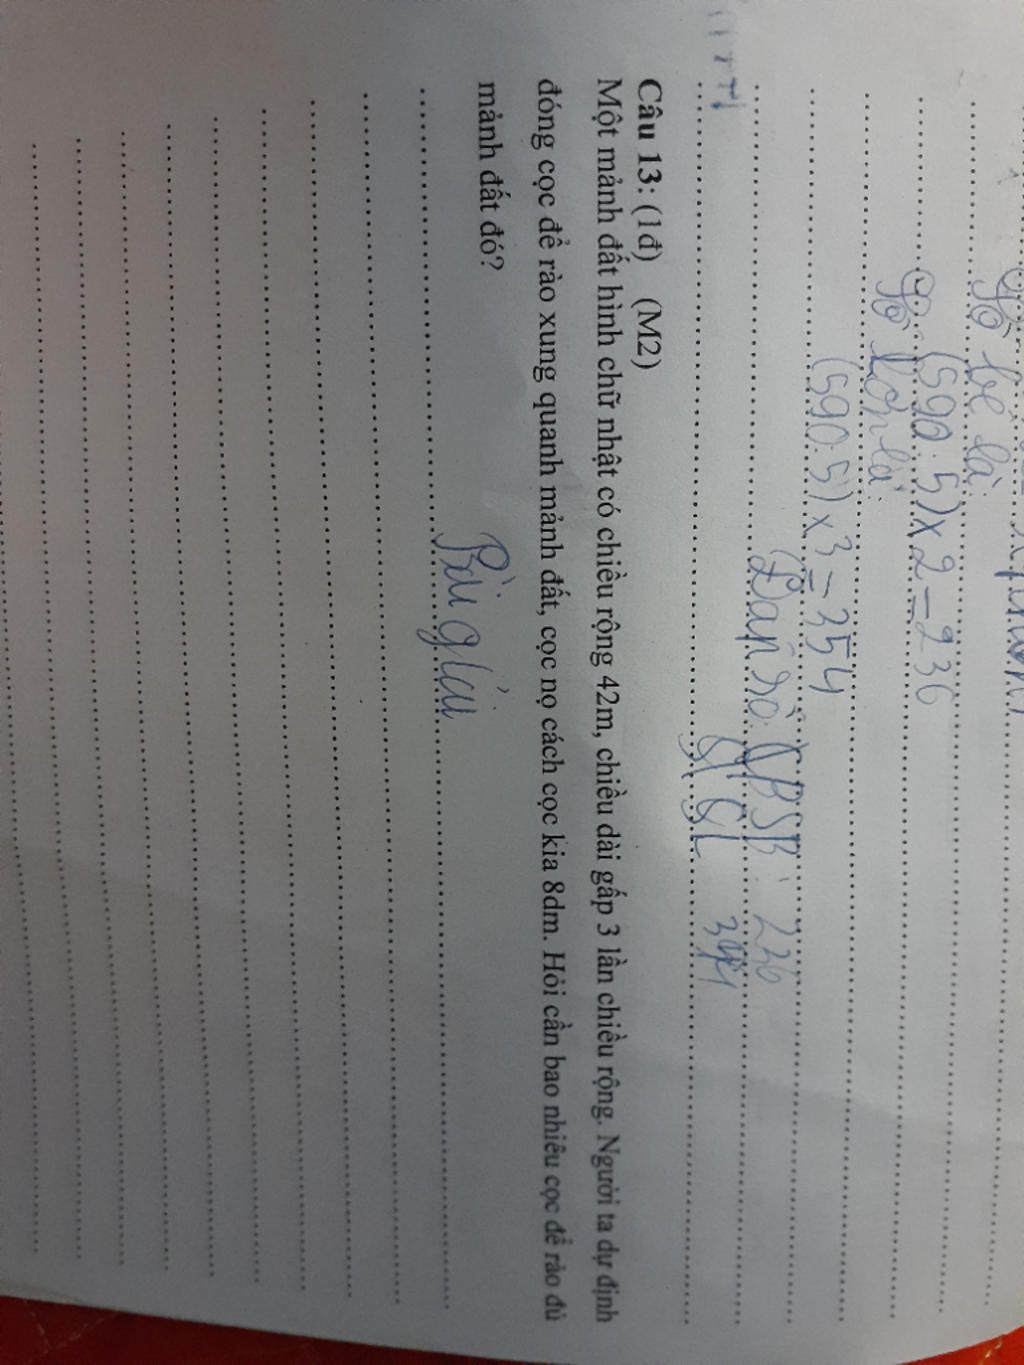 Số bé là:
(590:5)x2=236
Số lớn là:
(590:5)x3=354
Đáp số: SB 236
SL 354
Câu 13: (1đ) (M2)
Một mảnh đất hình chữ nhật có chiều rộng 42m, chiều dài gấp 3 lần chiều rộng. Người ta dự định
đóng cọc để rào xung quanh mảnh đất, cọc nọ cách cọc kia 8dm. Hỏi cần bao nhiêu cọc để rào đủ
mảnh đất đó?
Bài giải